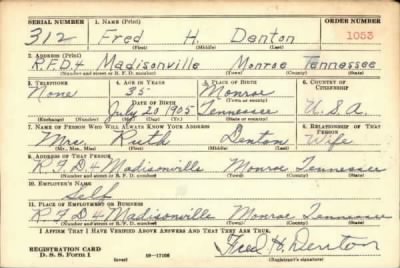 SERIAL NUMBER 1. NAME (Print) ORDER NUMBER
312 Fred H. Denton 1053
(First) (Middle) (Last)
2. ADDRESS (Print)
R.F.D.4 Madisonville Monroe Tennessee
(Number and street or R. F. D. number) (Town) (County) (State)
3. TELEPHONE 4. AGE IN YEARS 5. PLACE OF BIRTH 6. COUNTRY OF CITIZENSHIP
None 35 Monroe
(Town or county)
DATE OF BIRTH
July 20 1905 Tennessee U.S.A.
(Exchange) (Number) (Mo.) (Day) (Yr.) (State or country)
7. NAME OF PERSON WHO WILL ALWAYS KNOW YOUR ADDRESS 8. RELATIONSHIP OF THAT PERSON
Mrs. Ruth Denton Wife
(Mr., Mrs., Miss) (First) (Middle) (Last)
9. ADDRESS OF THAT PERSON
R.F.D.4 Madisonville Monroe Tennessee
(Number and street or R. F. D. number) (Town) (County) (State)
10. EMPLOYER'S NAME
Self
11. PLACE OF EMPLOYMENT OR BUSINESS
R.F.D.4 Madisonville Monroe Tennessee
(Number and street or R. F. D. number) (Town) (County) (State)
I AFFIRM THAT I HAVE VERIFIED ABOVE ANSWERS AND THAT THEY ARE TRUE.
REGISTRATION CARD
D. S. S. Form 1 (over) 16-17105 Fred H. Denton
(Registrant's signature)